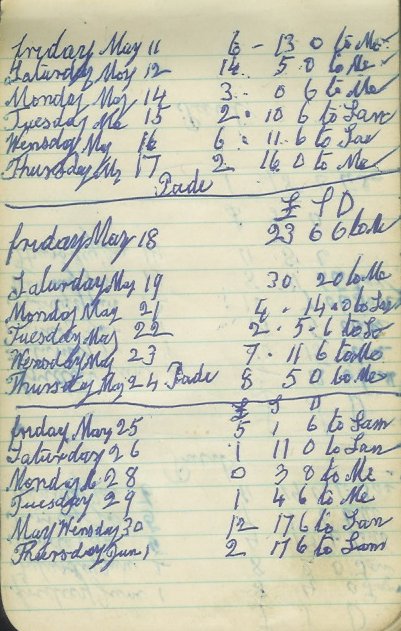 friday May 11 6 - 13 0 to Me
Saturday May 12 14 5 0 to Me
Monday May 14 3 - 0 6 to Me
Tuesday Ma 15 2 - 10 6 to Sam
Wensday May 16 6 - 11 - 6 to Sam
Thursday May 17 2 16 0 to Me
Pade
£ S D
friday May 18 23 6 6 to Me
Saturday May 19 30 2 0 to Me
Monday May 21 4 - 14 - 0 to Sam
Tuesday May 22 2 - 5 - 6 to
Wensday May 23 7 - 11 6 to Me
Thursday May 24 Pade 8 5 0 to Me
£ S D
friday May 25 5 1 6 to Sam
Saturday 26 1 11 0 to Sam
Monday 28 0 3 to Me
Tuesday 29 1 4 6 to Me
May Wensday 30 12 17 6 to Sam
Thursday Jun 1 2 17 6 to Sam